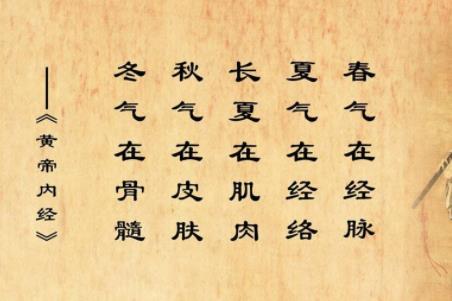 春气在经脉
夏气在经络
长夏在肌肉
秋气在皮肤
冬气在骨髓
——《黄帝内经》